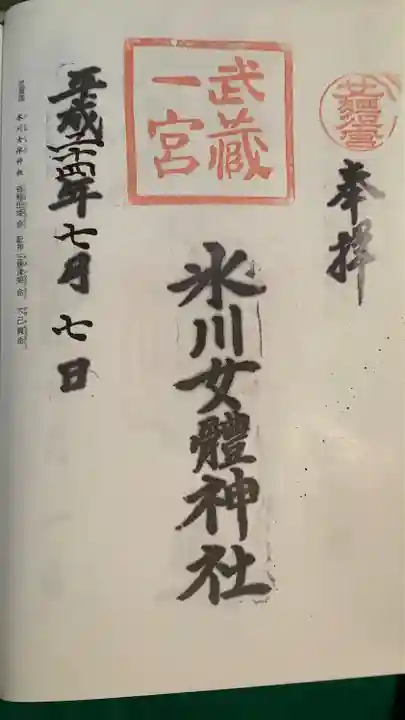 奉拜
武蔵
一宮
氷川女體神社
平成二十四年七月七日